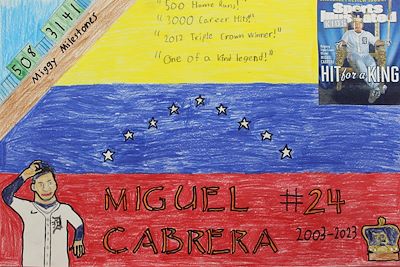 508 3,141
Miggy Milestones
"500 Home Runs!"
"3000 Career Hits!"
"2012 Triple Crown Winner!"
"One of a kind legend!"
Sports
Illustrated
KIDS
HIT for a KING
MIGUEL #24
CABRERA 2003-2023